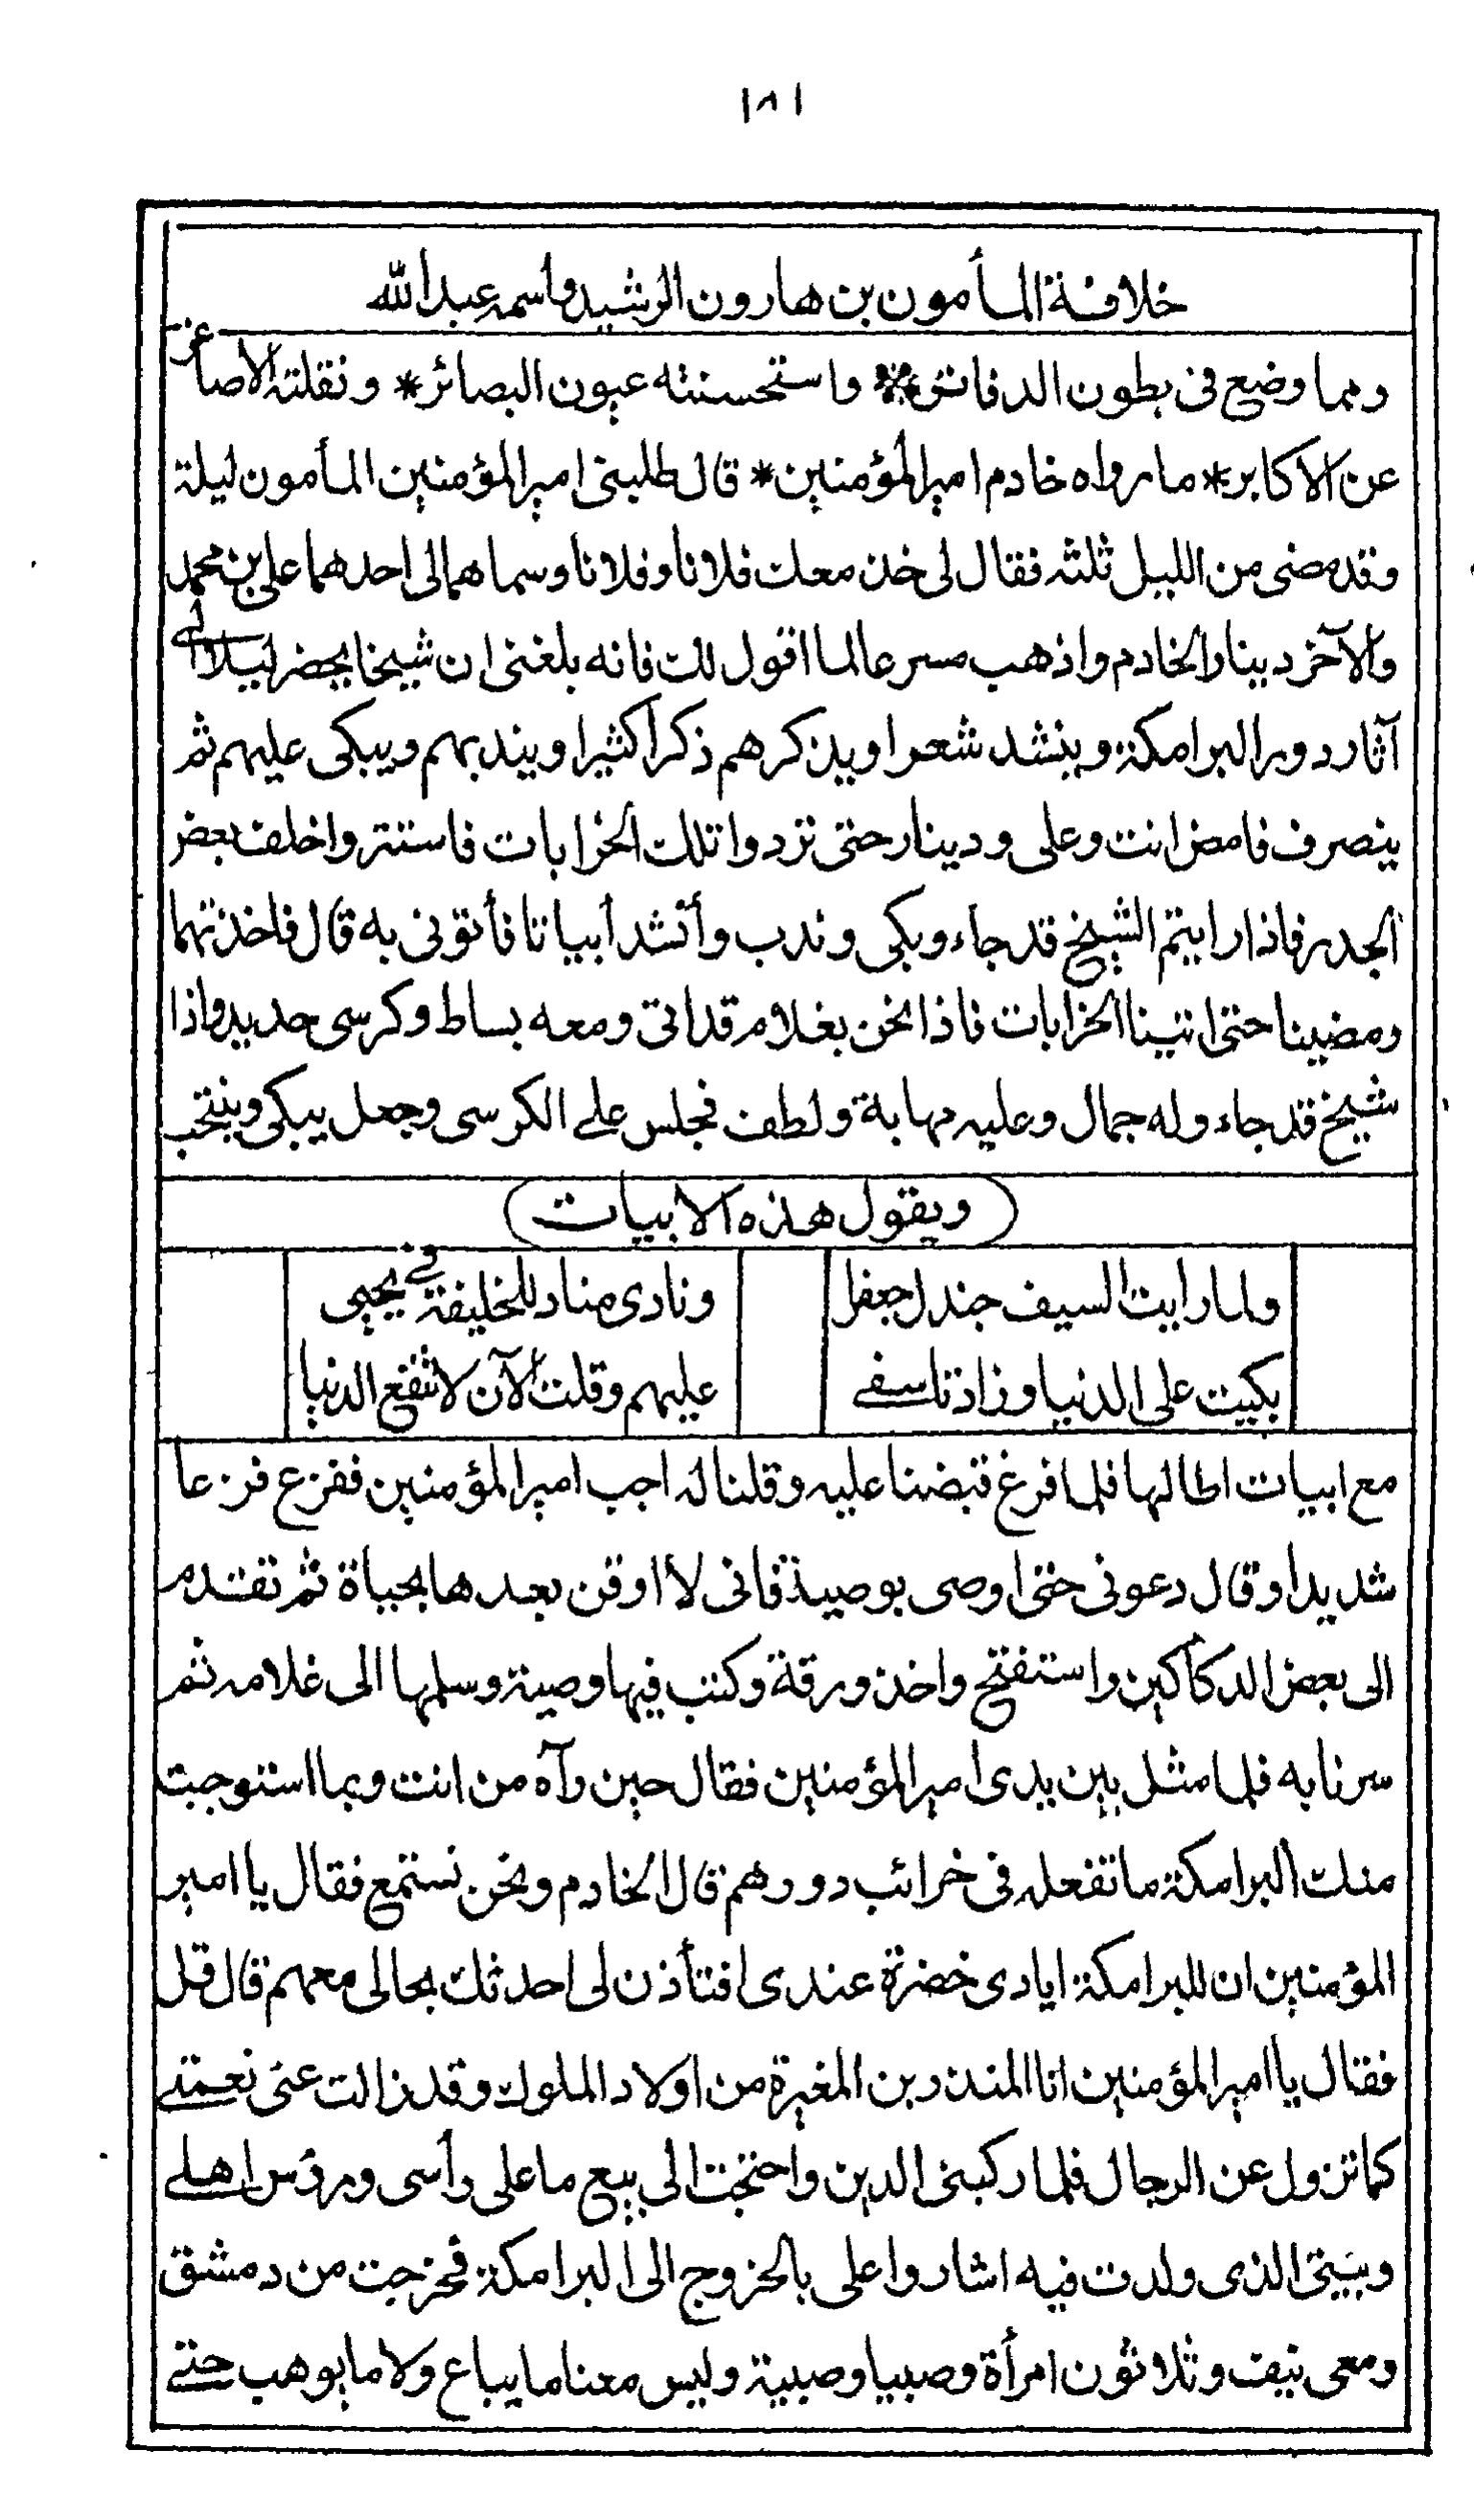 ١٨١
خلافة المأمون بن هارون الرشيد واسمه عبد الله
ومما وضع فى بطون الدفاتر * واستحسنته عيون البصائر * ونقلته الاصاغر
عن الاكابر * ما رواه خادم امير المؤمنين * قال طلبنى امير المؤمنين المأمون ليلة
وقد مضى من الليل ثلثه فقال لى خذ معك فلانا وفلانا وسماهما لى احدهما على بن محمد
والآخر دينار الخادم واذهب مسرعا لما اقول لك فانه بلغنى ان شيخا يحضر ليلا الى
آثار دور البرامكة وينشد شعرا ويذكرهم ذكرا كثيرا ويندبهم ويبكى عليهم ثم
ينصرف فامض انت وعلى ودينار حتى تردوا تلك الخرابات فاستتروا خلف بعض
الجدر فاذا رايتم الشيخ قد جاء وبكى وندب وأنشد أبياتا فأتونى به قال فاخذتهما
ومضينا حتى اتينا الخرابات فاذا نحن بغلام قد اتى ومعه بساط وكرسى حديد واذا
شيخ قد جاء وله جمال وعليه مهابة ولطف فجلس على الكرسى وجعل يبكى وينتحب
(ويقول هذه الابيات)
ولما رايت السيف جندل جعفرا ونادى مناد للخليفة فى يحيى
بكيت على الدنيا وزاد تاسفى عليهم وقلت الآن لا تنفع الدنيا
مع ابيات اطالها فلما فرغ قبضنا عليه وقلنا له اجب امير المؤمنين ففزع فزعا
شديدا وقال دعونى حتى اوصى بوصية فانى لا اوقن بعدها بحياة ثم تقدم
الى بعض الدكاكين واستفتح واخذ ورقة وكتب فيها وصية وسلمها الى غلامه ثم
سرنا به فلما مثل بين يدى امير المؤمنين فقال حين رآه من انت وبما استوجبت
منك البرامكة ما تفعله فى خرائب دورهم قال الخادم ونحن نستمع فقال يا امير
المؤمنين ان للبرامكة ايادى خضرة عندى افتأذن لى احدثك بحالى معهم قال قل
فقال يا امير المؤمنين انا المنذر بن المغيرة من اولاد الملوك وقد زالت عنى نعمتى
كما تزول عن الرجال فلما ركبنى الدين واحتجت الى بيع ما على رأسى ورؤس اهلى
وبيتى الذى ولدت فيه اشاروا على بالخروج الى البرامكة فخرجت من دمشق
ومعى نيف وثلاثون امرأة وصبيا وصبية وليس معنا ما يباع ولا ما يوهب حتى